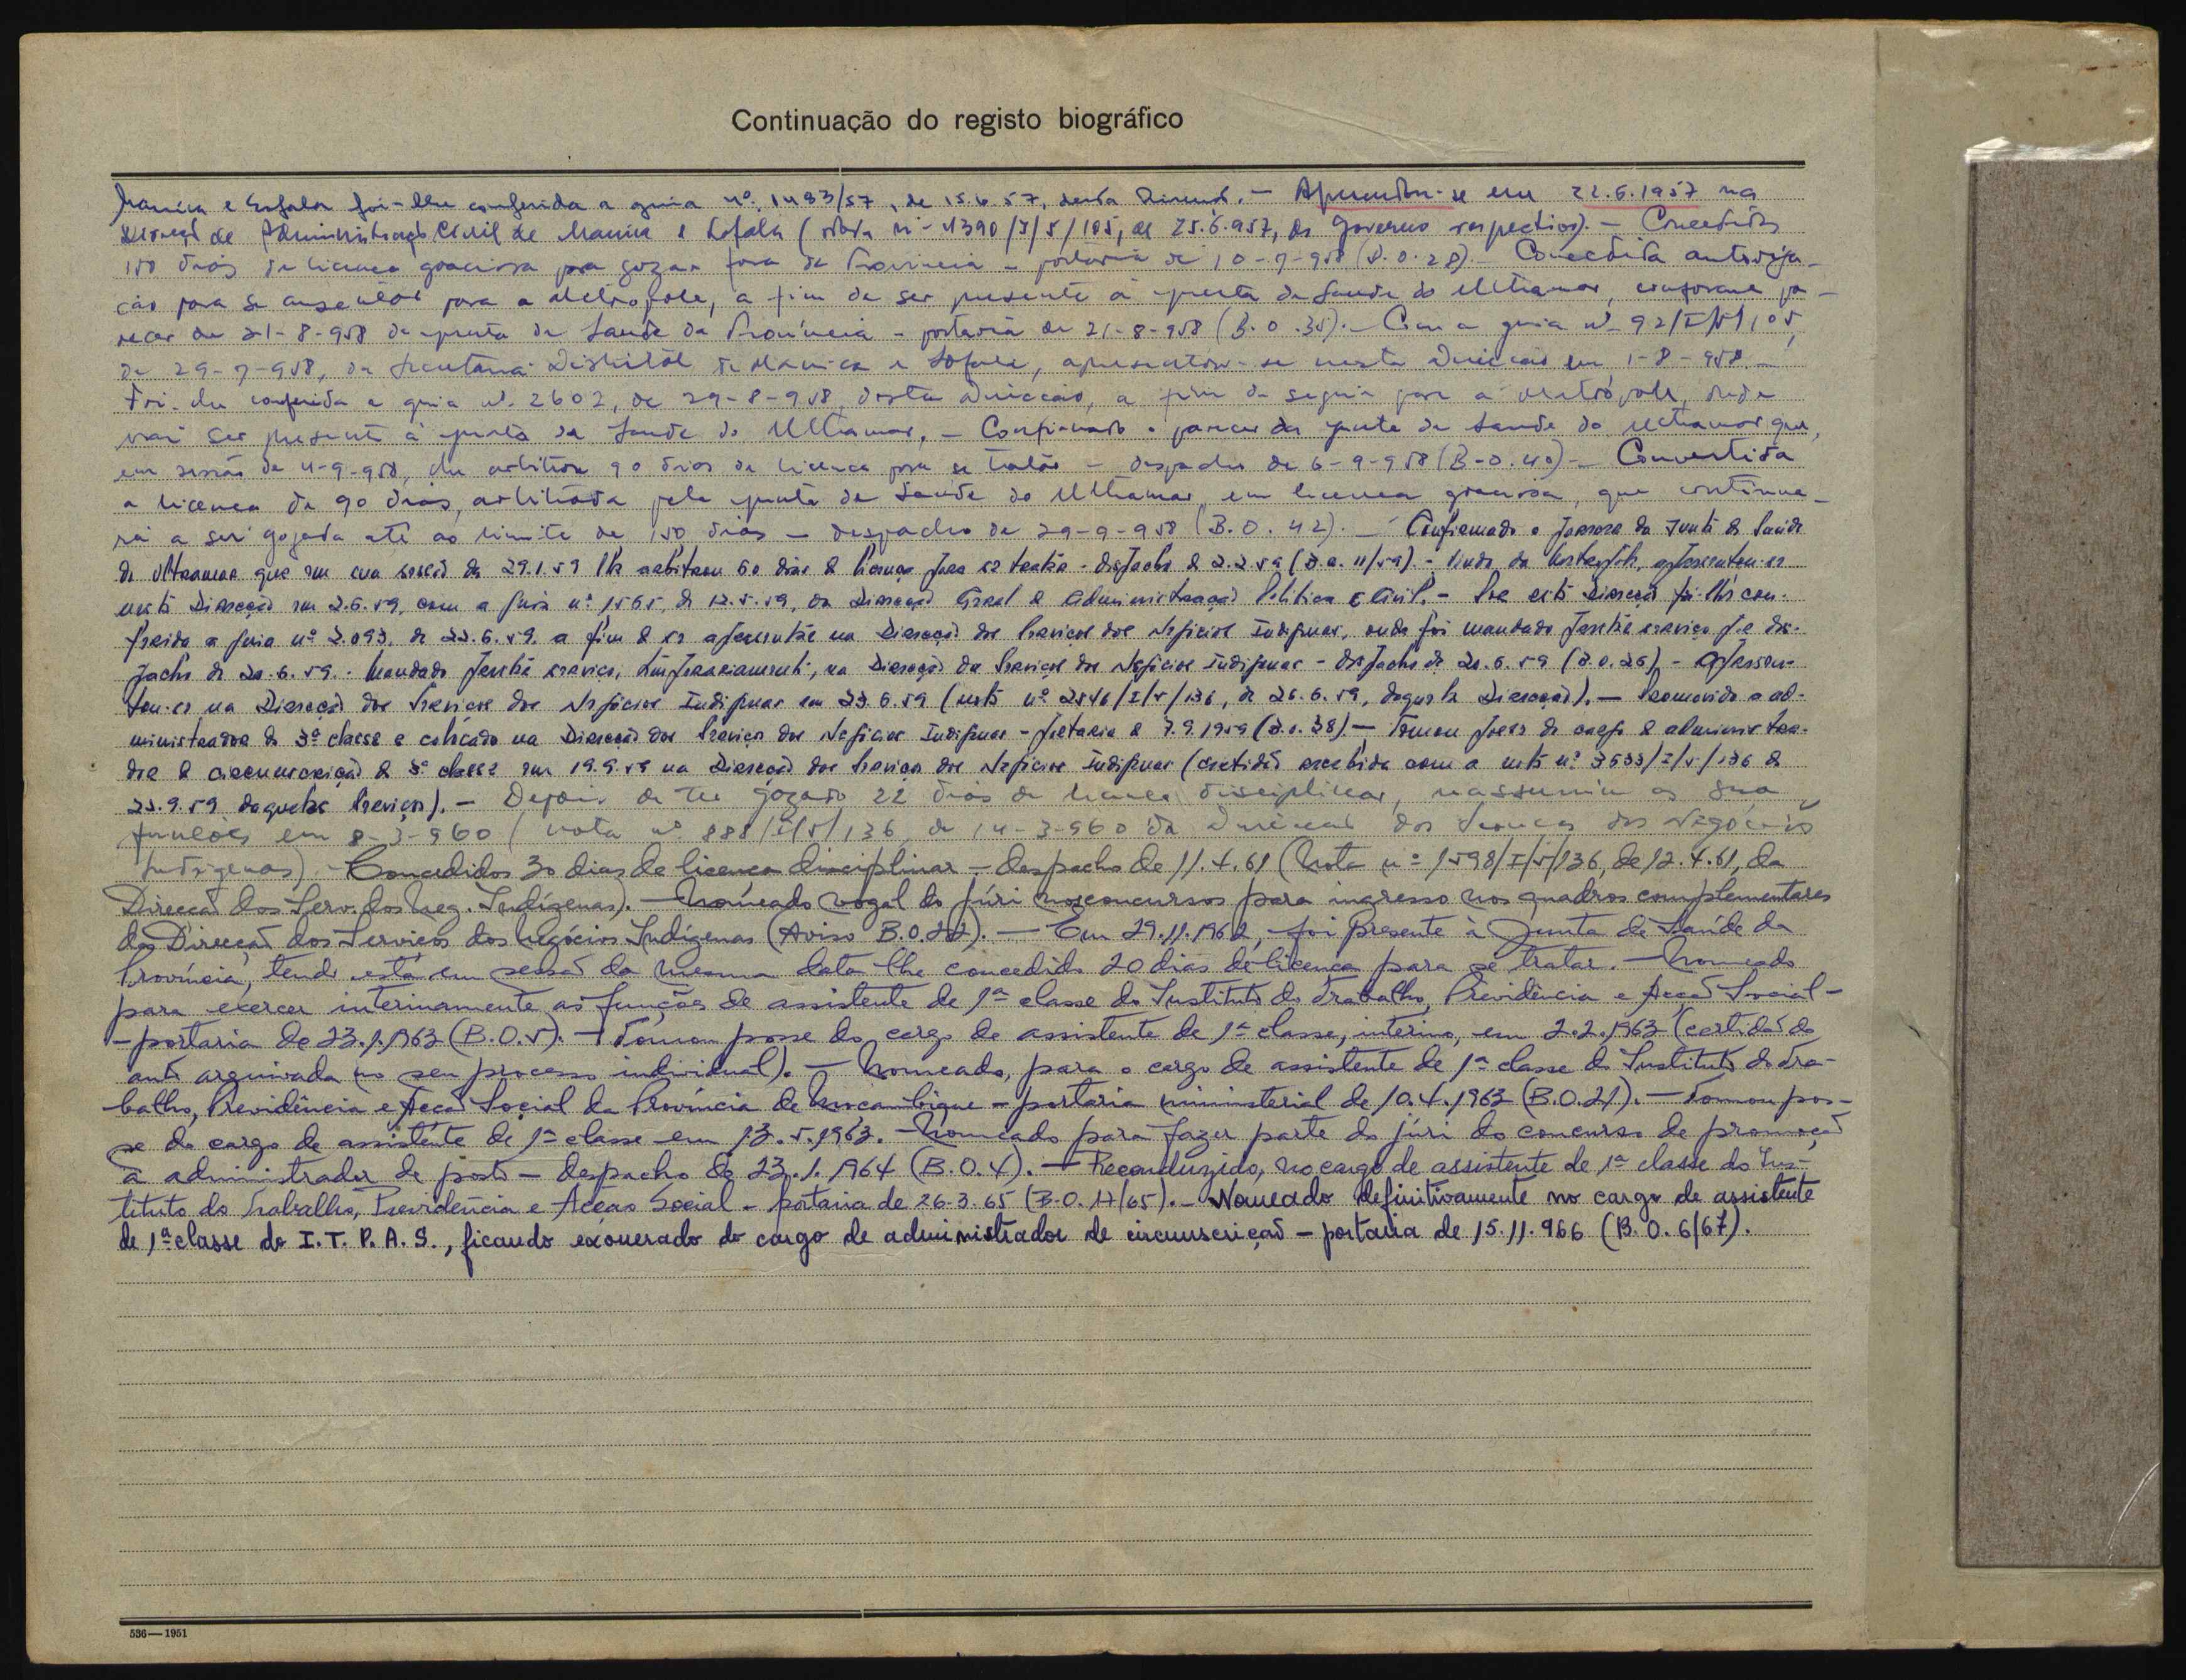 Continuação do registo biográfico
Manica e Sofala foi-lhe conferida a guia nº. 1493/57, de 15.6.57, desta Direcçã. — Apresentou-se em 22.6.1957 na
Direcçã de Administraçã Civil de Manica e Sofala (nota nº 4390/I/5/105, de 25.6.957, do Governo respectivo). — Concedidos
150 dias de licença graciosa para gozar fora da Provincia - portaria de 10-7-958 (B.O.28). — Concedida autoriza-
ção para se ausentar para a Metropole, a fim de ser presente á junta de Saude do Ultramar, conforme pa-
recer de 21-8-958 da junta de Saude da Provincia - portaria de 21-8-958 (B.O.35). — Com a guia nº 92/I/5/105,
de 29-7-958, da Secretaria Distrital de Manica e Sofala, apresentou-se nesta Direcção em 1-8-958. —
Foi-lhe conferida a guia nº. 2602, de 29-8-958, desta Direcção, a fim de seguir para a metrópole, onde
vai ser presente á junta de Saude do Ultramar. — Confirmado o parecer da junta de Saude do Ultramar que,
em sessão de 4-9-958, lhe arbitrou 90 dias de licença para se tratar - despacho de 6-9-958 (B.O.40) — Convertida
a licença de 90 dias, arbitrada pela junta de Saude do Ultramar, em licença graciosa, que continua-
rá a ser gozada até ao limite de 150 dias - despacho de 29-9-958 (B.O. 42). — Confirmado o parecer da Junta de Saúde
do Ultramar que em sua sessão de 29.1.59 lhe arbitrou 60 dias de licença para se tratar - despacho de 2.2.59 (B.O. 11/59). - Vindo da Metrópole, apresentou-se
nesta Direcção em 2.6.59, com a guia nº 1565, de 12.5.59, da Direcção Geral de Administração Política e Civil. - Por esta Direcção foi-lhe con-
ferida a guia nº 2.093, de 23.6.59, a fim de se apresentar na Direcção dos Serviços dos Negócios Indígenas, onde foi mandado prestar serviço por des-
pacho de 20.6.59. - Mandado prestar serviço, temporariamente, na Direcção dos Serviços dos Negócios Indígenas - despacho de 20.6.59 (B.O.26). - Apresen-
tou-se na Direcção dos Serviços dos Negócios Indígenas em 23.6.59 (nota nº 2546/I/5/136, de 26.6.59, daquela Direcção). — Promovido a ad-
ministrador de 3ª classe e colocado na Direcção dos Serviços dos Negócios Indígenas - portaria de 7.9.1959 (B.O.38) — Tomou posse do cargo de administra-
dor de circunscrição de 3ª classe em 19.9.59 na Direcção dos Serviços dos Negócios Indígenas (certidão recebida com a nota nº 3633/I/5/136 de
23.9.59 daqueles Serviços). — Depois de ter gozado 22 dias de licença disciplinar, reassumiu as suas
funções em 8-3-960 (nota nº 888/I/5/136, de 14-3-960 da Direcção dos Serviços dos Negócios
Indígenas). - Concedidos 30 dias de licença disciplinar - despacho de 11.4.61 (Nota nº 1598/I/5/136, de 12.4.61, da
Direcçã dos Serv. dos Neg. Indígenas). — Nomeado vogal do júri nos concursos para ingresso nos quadros complementares
da Direcçã dos Serviços dos Negócios Indígenas (Aviso B.O.22). — Em 29.11.1962, foi presente à Junta de Saúde da
Província, tendo esta em sessã da mesma data lhe concedido 20 dias de licença para se tratar. — Nomeado
para exercer interinamente as funções de assistente de 1ª classe do Instituto do Trabalho, Previdência e Acçã Social -
- portaria de 23.1.1963 (B.O.5). — Tomou posse do cargo de assistente de 1ª classe, interino, em 2.2.1963 (certidã do
auto arquivada no seu processo individual). — Nomeado, para o cargo de assistente de 1ª classe do Instituto do Tra-
balho, Previdência e Acçã Social da Província de Moçambique - portaria ministerial de 10.4.1963 (B.O.21). — Tomou pos-
se do cargo de assistente de 1ª classe em 13.5.1963. — Nomeado para fazer parte do júri do concurso de promoçã
a administrador de posto - despacho de 23.1.1964 (B.O.4). — Reconduzido, no cargo de assistente de 1ª classe do Ins-
tituto do Trabalho, Previdência e Acção Social - portaria de 26.3.65 (B.O. 17/65). - Nomeado definitivamente no cargo de assistente
de 1ª classe do I.T.P.A.S., ficando exonerado do cargo de administrador de circunscriçã - portaria de 15.11.966 (B.O. 6/67).
536—1951